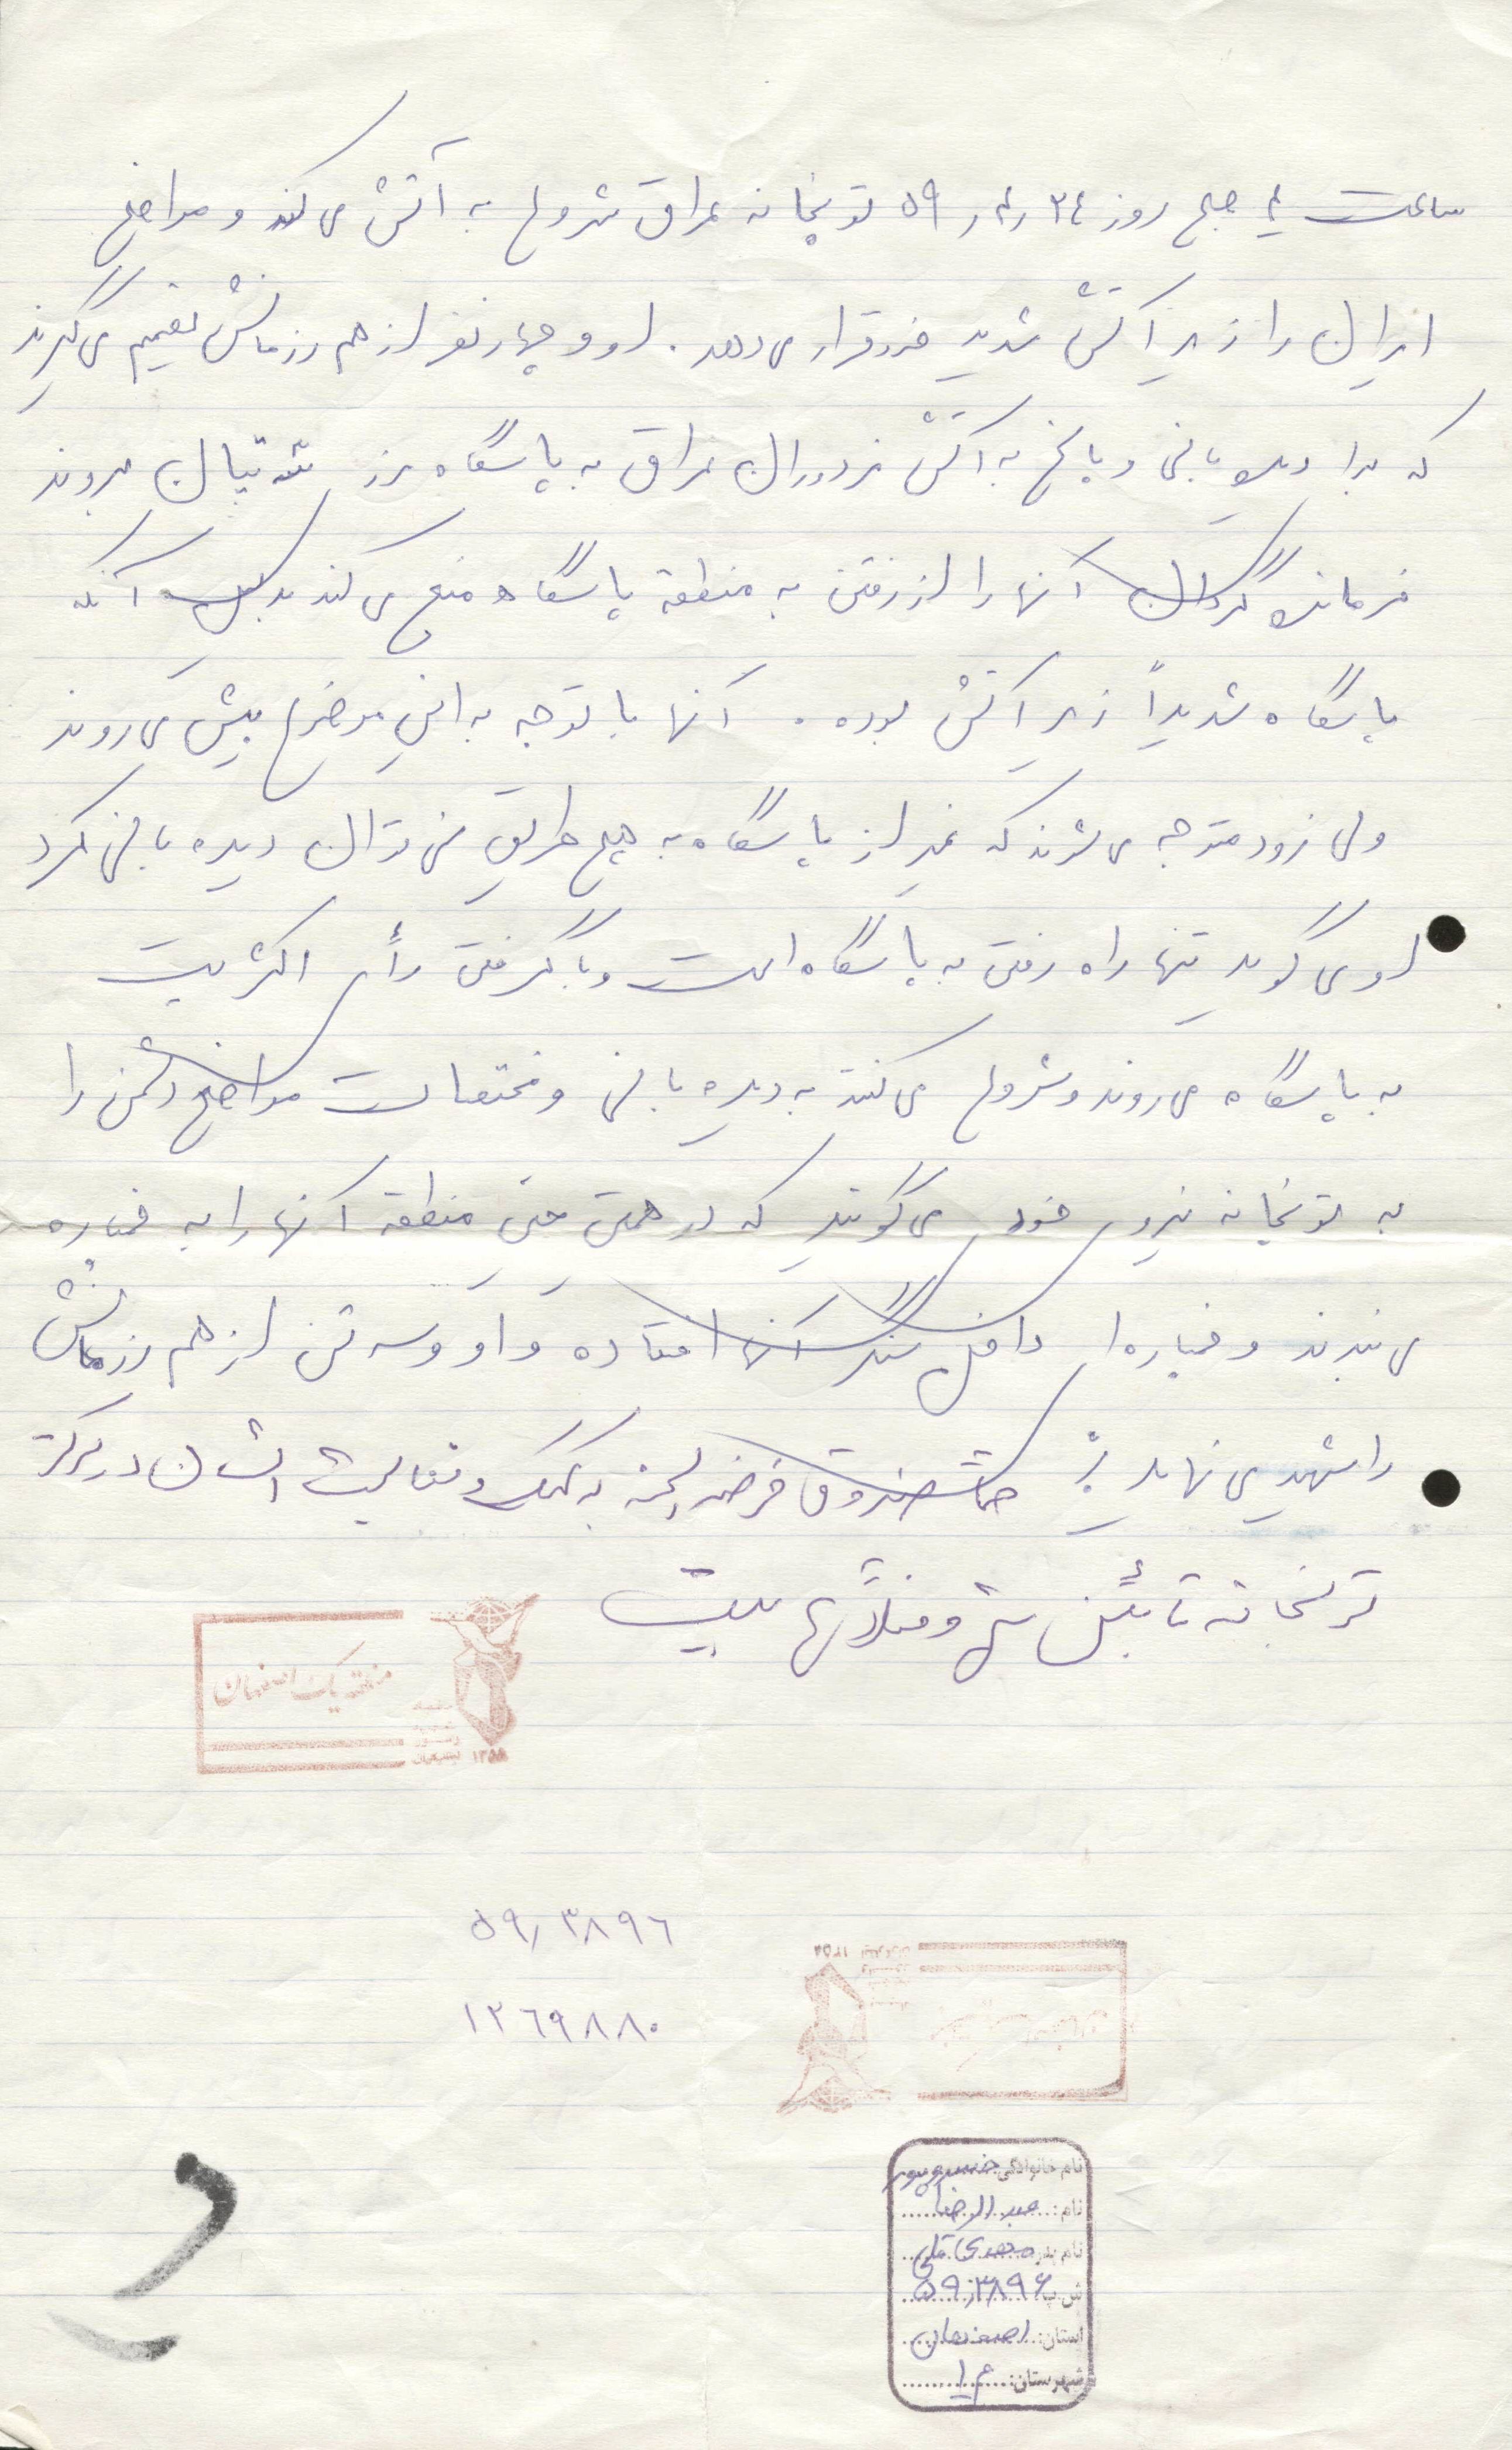 ساعت ۴ صبح روز ۲۴ ر ۴ ر ۵۹ توپخانه عراق شروع به آتش می کند و مواضع
ایران را زیر آتش شدید خود قرار می دهد. او و چهار نفر از هم رزمانش تصمیم می گیرند
که برای دیده بانی و پاسخ به آتش مزدوران عراق به پاسگاه مرزی بروند
فرمانده گردان آنها را از رفتن به منطقه پاسگاه منع می کند بدلیل آنکه
پاسگاه شدیداً زیر آتش بوده. آنها با توجه به این موضوع پیش می روند
ولی زود متوجه می شوند که غیر از پاسگاه به هیچ طریق نمی توان دیده بانی کرد
او می گوید تنها راه رفتن به پاسگاه است و با گرفتن رأی اکثریت
به پاسگاه می روند و شروع می کنند به دیده بانی و مختصات مواضع دشمن را
به توپخانه نیروی خود می گویند که در همین حین منطقه آنها را به خمپاره
می بندند و خمپاره ای داخل سنگر آنها افتاده و او و سه تن از هم رزمانش
را شهید می نماید. ضمناً صندوق قرض الحسنه به کمک و فعالیت ایشان در مرکز
توپخانه تأسیس شد
منطقه یک اصفهان
۱۳۵۸
۵۹٫۳۸۹۶
۱۲۶۹۸۸۰
۱۳۵۸
نام خانوادگی: خسروپور
نام: عبدالرضا
نام پدر: مهدی قلی
ش پ: ۵۹٫۳۸۹۶
استان: اصفهان
شهرستان: م ۱